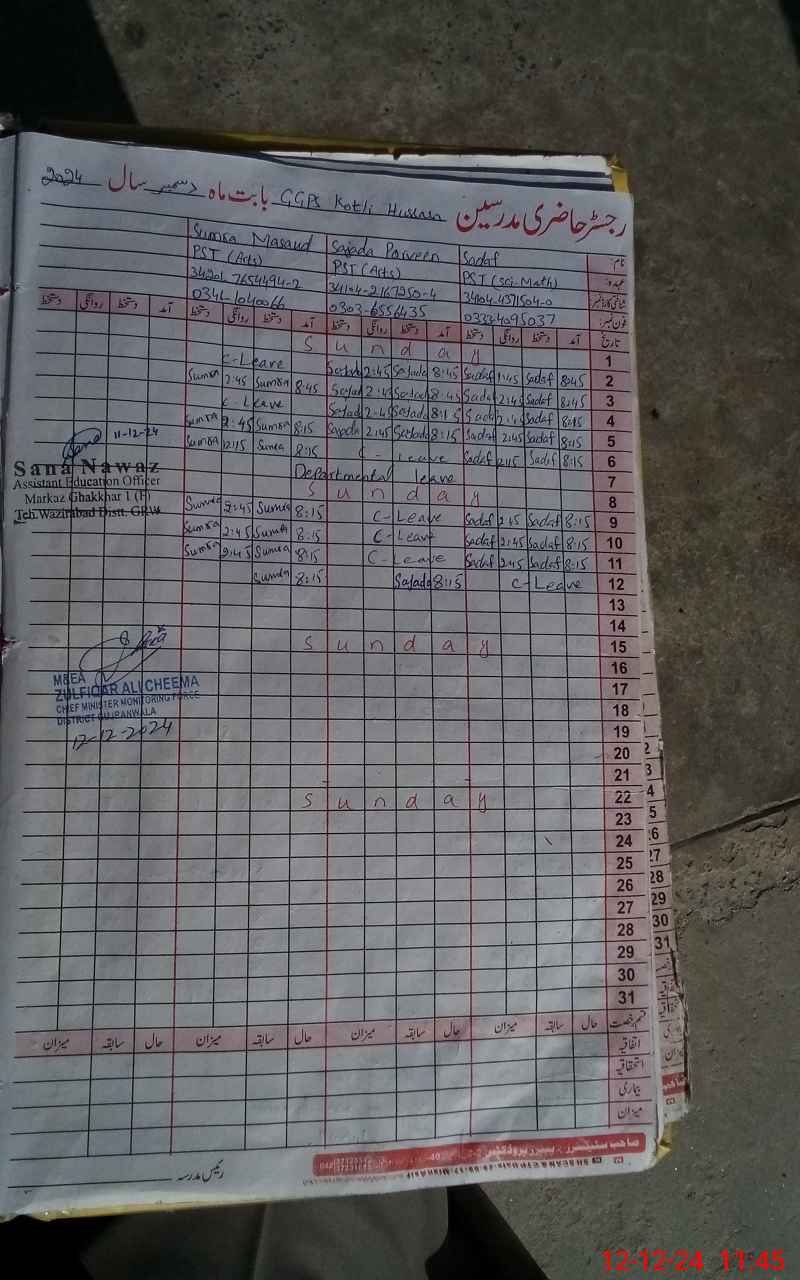 رجسٹر حاضری مدرسین GGPS Kotli Hussara بابت ماہ دسمبر سال 2024
نام: Sadaf Sajada Parveen Sumra Masaud
عہدہ: PST (Sci-Math) PST (Arts) PST (Arts)
شناختی کارڈ نمبر: 34104-4371504-0 34104-2167250-4 34201-7654494-2
فون نمبر: 03334095037 0303-6556435 0346-1040066
تاریخ دستخط روانگی دستخط آمد دستخط روانگی دستخط آمد دستخط روانگی دستخط آمد دستخط روانگی دستخط آمد
1 Sunday
2 8:45 Sadaf 1:45 Sadaf 8:45 Sajada 2:45 Sajada C-Leave
3 8:45 Sadaf 2:45 Sadaf 8:45 Sajada 2:45 Sajada 8:45 Sumra 2:45 Sumra
4 8:15 Sadaf 2:45 Sadaf 8:15 Sajada 2:45 Sajada C-Leave
5 8:15 Sadaf 2:45 Sadaf 8:15 Sajada 2:45 Sajada 8:15 Sumra 2:45 Sumra
6 8:15 Sadaf Sadaf C-Leave 8:15 Sumra 12:15 Sumra
7 Departmental leave
8 Sunday
9 8:15 Sadaf 2:45 Sadaf C-Leave 8:15 Sumra 2:45 Sumra
10 8:15 Sadaf 2:45 Sadaf C-Leave 8:15 Sumra 2:45 Sumra
11 8:15 Sadaf 2:45 Sadaf C-Leave 8:15 Sumra 2:45 Sumra
12 C-Leave 8:15 Sajada 8:15 Sumra
13
14
15 Sunday
16
17
18
19
20
21
22 Sunday
23
24
25
26
27
28
29
30
31
11-12-24
Sana Nawaz
Assistant Education Officer
Markaz Ghakkhar 1 (F)
Teh.Wazirabad Distt. GRW
M&EA
ZULFIQAR ALI CHEEMA
CHIEF MINISTER MONITORING FORCE
DISTRICT GUJRANWALA
12-12-2024
قسم رخصت حال سابقہ میزان حال سابقہ میزان حال سابقہ میزان حال سابقہ میزان
اتفاقیہ
استحقاقیہ
بیماری
میزان
رئیس مدرسہ
2
3
4
5
26
27
28
29
30
31
12-12-24 11:45